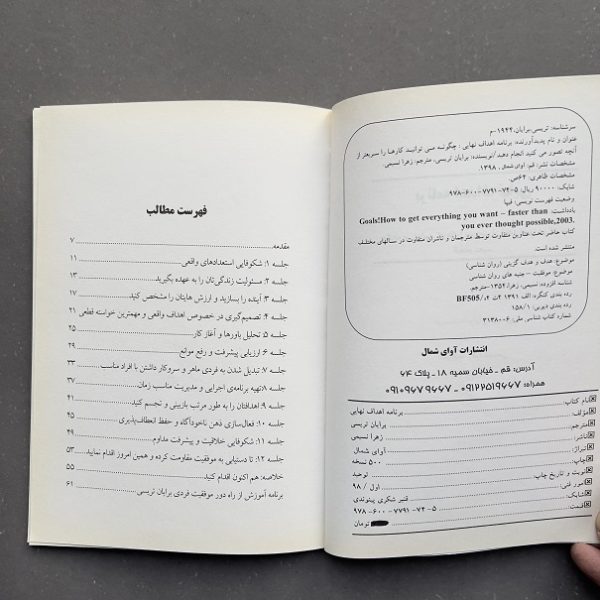 سرشناسه: تریسی،برایان،۱۹۴۴-م
عنوان و نام پدیدآورنده: برنامه اهداف نهایی : چگونه می توانید کارها را سریعتر از
آنچه تصور می کنید انجام دهید /نویسنده: برایان تریسی، مترجم: زهرا نسیمی.
مشخصات نشر: قم، آوای شمال، ۱۳۹۸.
مشخصات ظاهری: ۶۴ص.
شابک: ۹۰۰۰۰ ریال: ۵-۷۴-۷۷۹۱-۶۰۰-۹۷۸
وضعیت فهرست نویسی: فیپا
یادداشت: Goals!How to get everything you want – faster than
you ever thought possible,2003.
کتاب حاضر تحت عناوین متفاوت توسط مترجمان و ناشران متفاوت در سالهای مختلف
منتشر شده است.
موضوع: هدف و هدف گزینی (روان شناسی)
موضوع: موفقیت - جنبه های روان شناسی
شناسه افزوده: نسیمی، زهرا،۱۳۵۲-مترجم.
رده بندی کنگره: الف ۱۳۹۱ ۴ت ۲/ BF505
رده بندی دیویی: ۱۵۸/۱
شماره کتاب شناسی ملی: ۳۱۳۸۰۰۶
انتشارات آوای شمال
آدرس: قم - خیابان سمیه ۱۸ـ پلاک ۶۴
همراه: ۰۹۱۲۲۵۱۹۶۶۷ - ۰۹۱۰۹۶۷۹۶۶۷
نام کتاب: برنامه اهداف نهایی
مؤلف: برایان تریسی
مترجم: زهرا نسیمی
ناشر: آوای شمال
تیراژ: ۵۰۰ نسخه
چاپ: توحید
نوبت و تاریخ چاپ: اول / ۹۸
امور فنی: قنبر شکری پینوندی
شابک: ۵-۷۴-۷۷۹۱-۶۰۰-۹۷۸
قیمت: تومان
فهرست مطالب
مقدمه ۷
جلسه ۱: شکوفایی استعدادهای واقعی ۱۱
جلسه ۲: مسئولیت زندگی‌تان را به عهده بگیرید ۱۳
جلسه ۳: آینده را بسازید و ارزش هایتان را مشخص کنید ۱۷
جلسه ۴: تصمیم‌گیری در خصوص اهداف واقعی و مهمترین خواسته قطعی ۲۱
جلسه ۵: تحلیل باورها و آغاز کار ۲۵
جلسه ۶: ارزیابی پیشرفت و رفع موانع ۲۹
جلسه ۷: تبدیل شدن به فردی ماهر و سروکار داشتن با افراد مناسب ۳۳
جلسه ۸:تهیه برنامه‌ی اجرایی و مدیریت مناسب زمان ۳۷
جلسه ۹: اهدافتان را به طور مرتب بازبینی و تجسم کنید ۴۱
جلسه ۱۰: فعال‌سازی ذهن ناخودآگاه و حفظ انعطاف‌پذیری ۴۵
جلسه ۱۱: شکوفایی خلاقیت و پیشرفت مداوم ۴۹
جلسه ۱۲: تا دستیابی به موفقیت مقاومت کرده و همین امروز اقدام نمایید ۵۳
خلاصه: هم اکنون اقدام کنید ۵۵
برنامه آموزش از راه دور موفقیت فردی برایان تریسی ۶۱